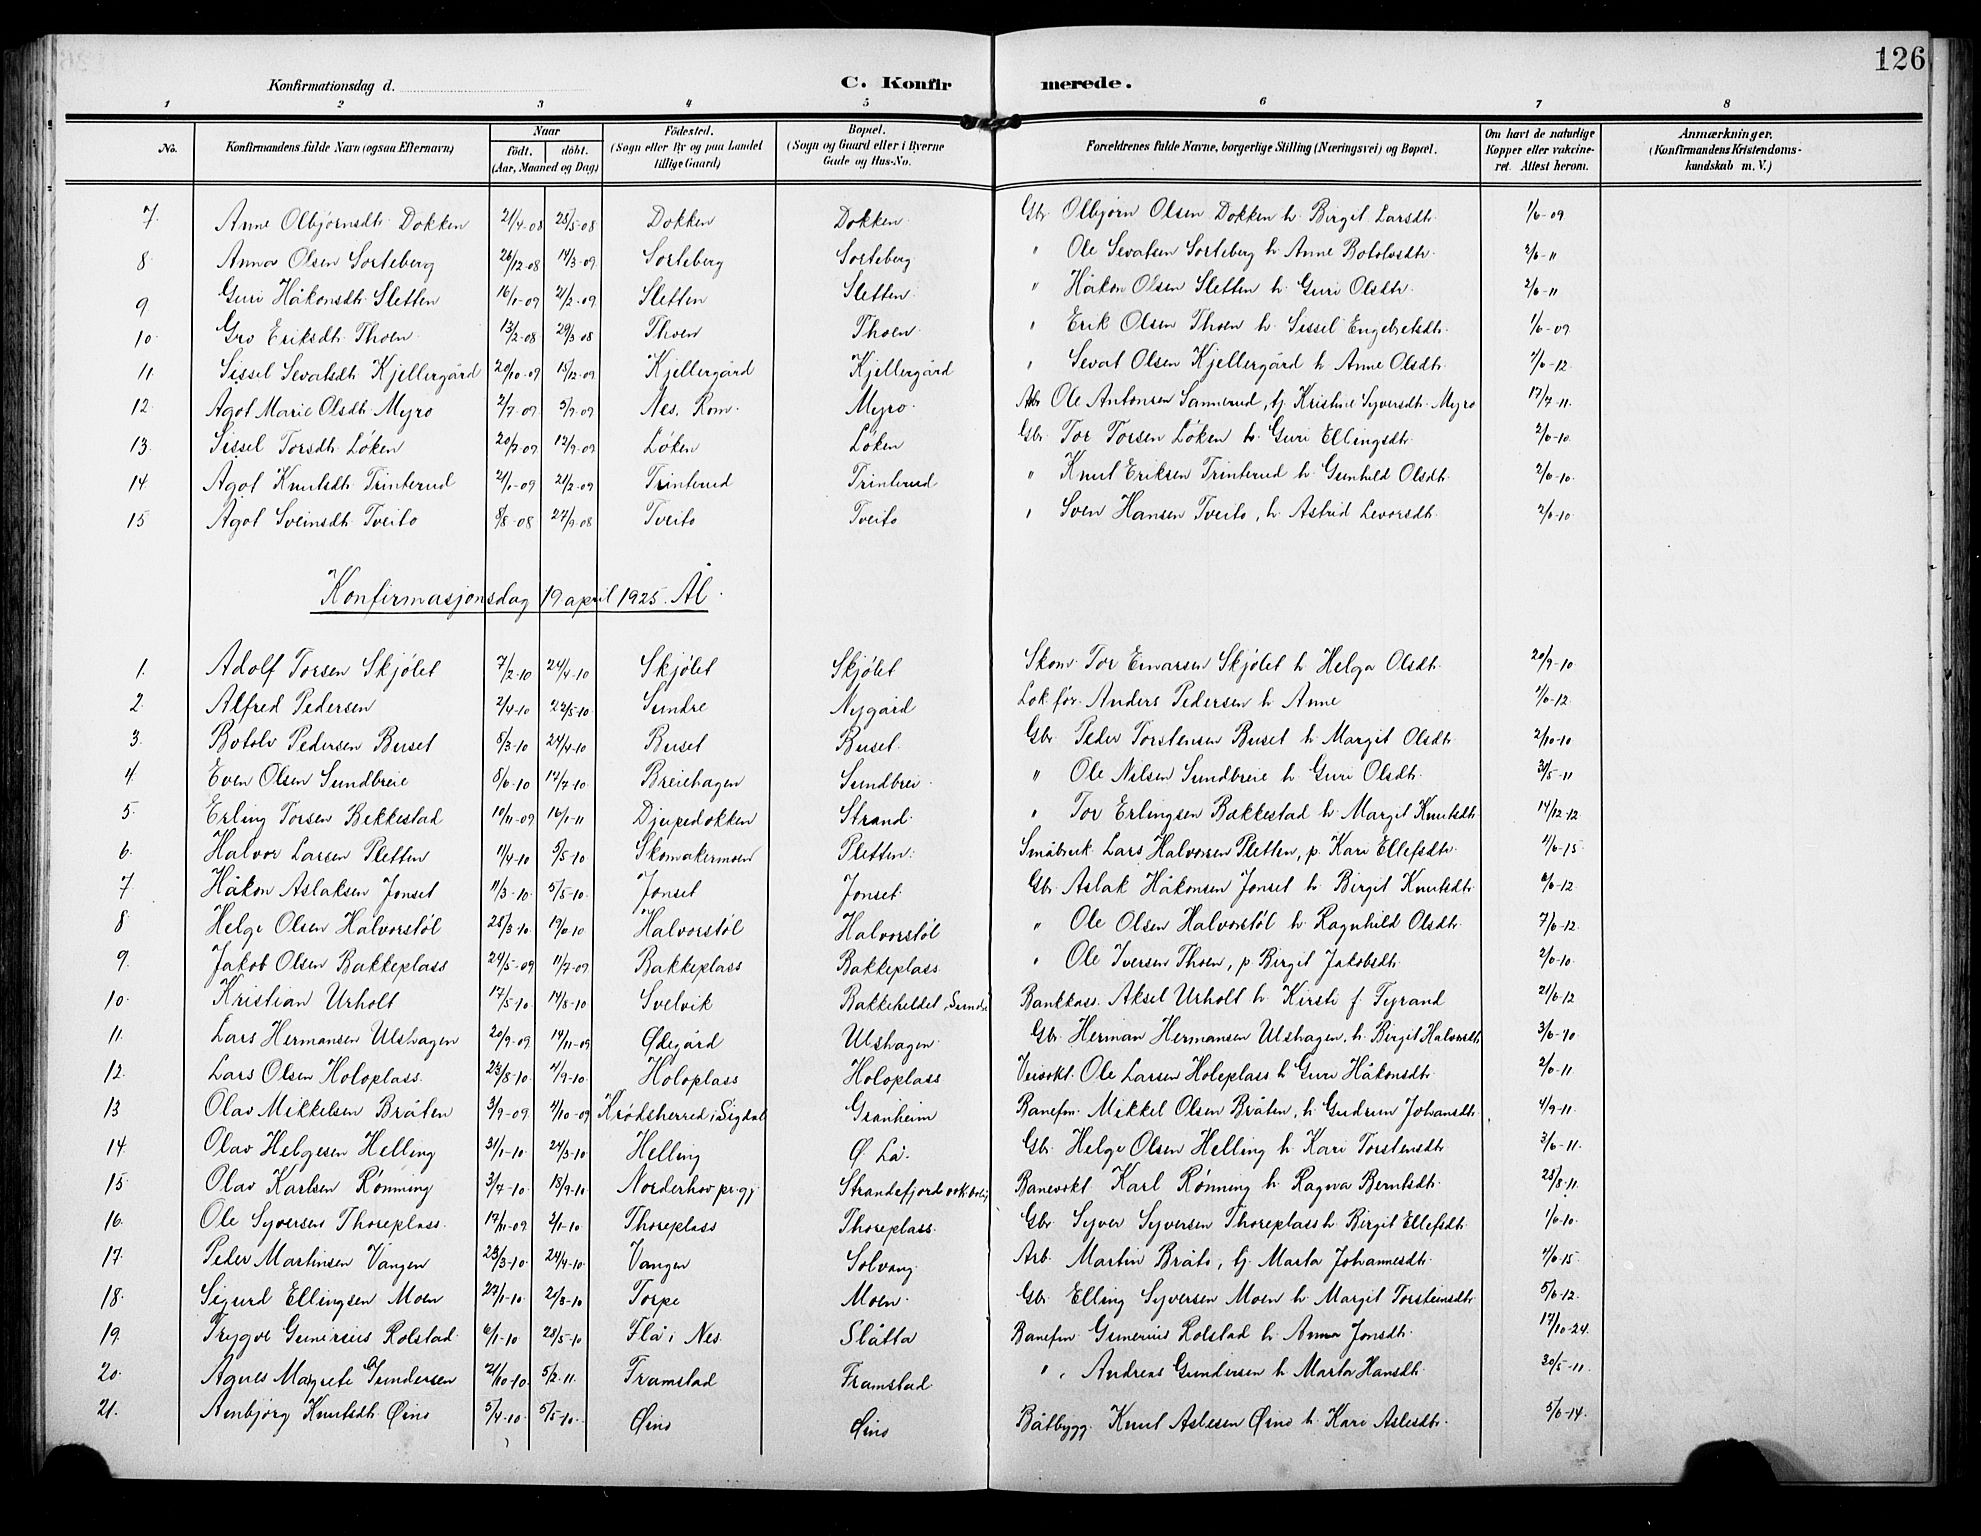 126
Konfirmationsdag d.
C. Konfirmerede.
1 2 3 4 5 6 7 8
No. Konfirmandens fulde Navn (ogsaa Efternavn) Naar født. døbt. (Aar, Maaned og Dag) Fødested. (Sogn eller By og paa Landet tillige Gaard) Bopæl. (Sogn og Gaard eller i Byerne Gade og Hus-No. Forældrenes fulde Navne, borgerlige Stilling (Næringsvei) og Bopæl. Om havt de naturlige Kopper eller vakcineret. Attest herom. Anmærkninger. (Konfirmandens Kristendomskundskab m. V.)
7. Anne Olbjørnsdtr. Dokken 21/4-08 28/5-08 Dokken Dokken Gbr. Olbjørn Olsen Dokken h. Birgit Larsdtr. 1/6-09
8. Anna Olsen Sorteberg 26/12-08 14/3-09 Sorteberg Sorteberg " Ole Sevatsen Sorteberg h. Anne Botolvsdtr. 2/6-11
9 Guri Håkonsdtr. Sletten 16/1-09 21/2-09 Sletten Sletten " Håkon Olsen Sletten h. Guri Olsdtr. 2/6-11
10. Gro Eriksdtr. Thoen 13/2-08 29/3-08 Thoen Thoen " Erik Olsen Thoen h. Sissel Engebretsdtr. 1/6-09
11 Sissel Sevatsdtr. Kjellergård 20/10-09 15/12-09 Kjellergård Kjellergård " Sevat Olsen Kjellergård h. Anne Olsdtr. 7/6-12
12. Agot Marie Olsdtr. Myro 2/7-09 5/9-09 Nes, Rom. Myro. Arb. Ole Antonsen Sannerud, tj. Kristine Syversdtr. Myro 17/7-11.
13. Sissel Torsdtr. Løken 20/7-09 12/9-09 Løken Løken Gbr. Tor Torsen Løken h. Guri Ellingsdtr. 2/6-10.
14 Agot Knutsdtr. Trinterud 2/1-09 21/2-09 Trinterud Trinterud " Knut Eriksen Trinterud h. Gunhild Olsdtr. 2/6-10.
15 Agot Sveinsdtr. Tveito 8/8-08 27/9-08 Tveito Tveito " Sven Hansen Tveito, h. Astrid Levorsdtr. 2/6-10
Konfirmasjonsdag 19 april 1925. Ål.
1. Adolf Torsen Skjølet 7/2-10 24/4-10 Skjølet Skjølet Skom. Tor Einarsen Skjølet h. Helga Olsdtr. 20/9-10
2. Alfred Pedersen 2/4-10 22/5-10 Sundre Nygård Lok.før. Anders Pedersen h. Anne 7/6-12.
3. Botolv Pedersen Buset 5/3-10 24/4-10 Buset Buset. Gbr. Peder Torstensen Buset h. Margit Olsdtr. 2/10-10
4 Even Olsen Sundbreie 8/6-10 17/7-10 Breiehagen Sundbrei. " Ole Nilsen Sundbreie h. Guri Olsdtr. 30/5-11
5. Erling Torsen Bekkestad 10/11-09 16/1-11 Djupedokken Strand. " Tor Erlingsen Bakkestad h. Margit Knutsdtr. 14/12-12
6. Halvor Larsen Pletten 11/4-10 5/5-10 Skomakermoen Pletten. Småbruk. Lars Halvorsen Pletten, p. Kari Ellefsdtr. 11/6-15
7 Håkon Aslaksen Jonset 11/3-10. 5/5-10 Jonset Jonset. Gbr. Aslak Håkonsen Jonset h. Birgit Knutsdtr. 6/6-12.
8 Helge Olsen Halvorstøl 28/3-10. 19/6-10 Halvorstøl Halvorstøl " Ole Olsen Halvorstøl h. Ragnhild Olsdtr. 7/6-12.
9. Jakob Olsen Bakkeplass 24/5-09 11/7-09. Bakkeplass Bakkeplass " Ole Iversen Thoen, p. Birgit Jakobsdtr. 2/6-10.
10. Kristian Urholt 17/5-10. 14/8-10 Svelvik Bakkeheldet, Sundre Bankkass. Aksel Urholt h. Kirsti f. Tyrand 21/6-12
11. Lars Hermansen Ulshagen 20/9-09. 14/11-09 Ødegård Ulshagen. Gbr. Herman Hermansen Ulshagen, h. Birgit Halvorsdtr. 3/6-10
12. Lars Olsen Holoplass 23/8-10. 4/9-10. Holoplass Holoplass Veivokt. Ole Larsen Holeplass h. Guri Håkonsdtr. 2/6-11
13 Olav Mikkelsen Bråten 3/9-09. 4/10-09 Krødsherred i Sigdal Granheim Banefm. Mikkel Olsen Bråten, h. Gudrun Johansdtr. 4/9-11.
14. Olav Helgesen Helling 31/1-10. 24/3-10 Helling Ø. Lå. Gbr. Helge Olsen Helling h. Kari Torstensdtr. 3/6-11.
15. Olav Karlsen Rønning 3/7-10 18/9-10 Norderhov pr.gj. Strandefjord Banevokt. Karl Rønning h. Ragna Berntsdtr. 28/8-11.
16. Ole Syversen Thoreplass. 17/11-09 2/1-10 Thoreplass Thoreplass. Gbr. Syver Syversen Thoreplass h. Birgit Ellefsdtr. 1/6-10.
17. Peder Martinsen Vangen 23/3-10. 24/4-10. Vangen Solvang Arb. Martin Bråto, tj. Marta Johannesdtr. 11/6-15.
18. Sigurd Ellingsen Moen 27/1-10. 20/3-10 Torpe Moen. Gbr. Elling Syversen Moen h. Margit Torsteinsdtr. 5/6-12.
19. Trygve Gunerius Rolstad 6/1-10 28/5-10 Flå i Nes. Slåtta Banefm. Gunerius Rolstad h. Anna Jonsdtr. 17/10-24.
20. Agnes Margrete Gundersen 21/10-10. 5/2-11. Framstad Framstad " " Andreas Gundersen h. Marta Hansdtr. 30/5-11.
21. Arnbjørg Knutsdtr. Øino 5/4-10 5/5-10. Øino Øino Båtbygg. Knut Aslesen Øino h. Kari Aslesdtr. 5/6-14.